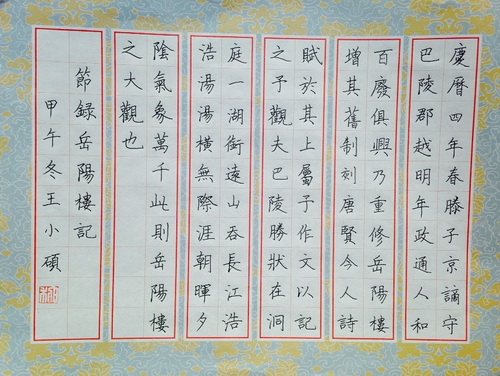 慶曆四年春滕子京謫守
巴陵郡越明年政通人和
百廢俱興乃重修岳陽樓
增其舊制刻唐賢今人詩
賦於其上屬予作文以記
之予觀夫巴陵勝狀在洞
庭一湖銜遠山吞長江浩
浩湯湯橫無際涯朝暉夕
陰氣象萬千此則岳陽樓
之大觀也
節録岳陽樓記
甲午冬王小碩